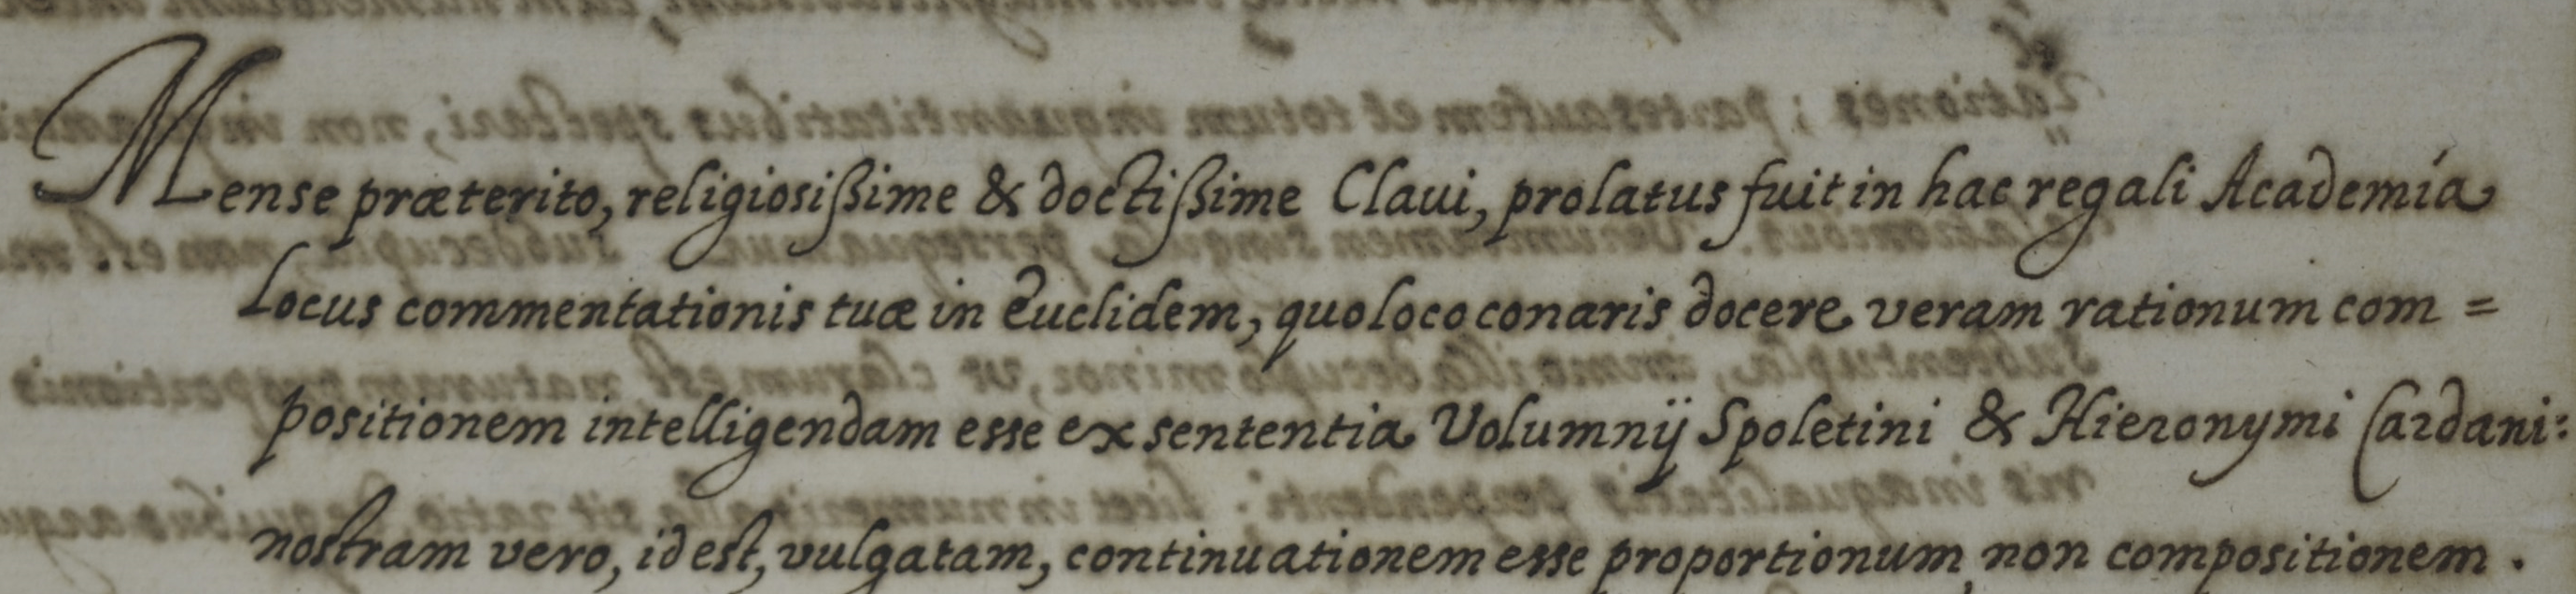 Mense præterito, religiosißime & doctißime Claui, prolatus fuit in hac regali Academía
Locus commentationis tuæ in Euclidem, quo loco conaris docere veram rationum com =
positionem intelligendam esse ex sententia Volumnij Spoletini & Hieronymi Cardani:
nostram vero, id est, vulgatam, continuationem esse proportionum, non compositionem.